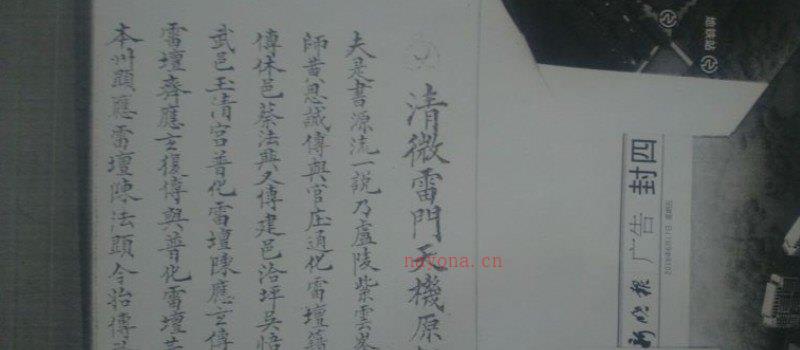 清微雷門天機原
夫是書源流一説乃盧陵紫雲峯
師黄恩誠傳與官庄通化雷壇籍
傳休邑蔡法興又傳建邑洽坪吴悟
武邑玉清宫普化雷壇陳應玄傳
雷壇齊應玄復傳與普化雷壇
本州顕應雷壇陳法顕今抬傳
nayona.cn
封四
广告